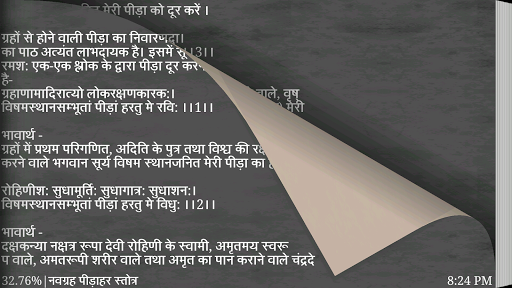 मेरी पीड़ा को दूर करें ।
ग्रहों से होने वाली पीड़ा का निवारण
का पाठ अत्यंत लाभदायक है। इसमें सू ।।3।।
रमश: एक-एक श्लोक के द्वारा पीड़ा दूर कर
है-
ग्रहाणामादिरात्यो लोकरक्षणकारक:। वाले, वृष
विषमस्थानसम्भूतां पीड़ां हरतु मे रवि: ।।1।। मेरी
भावार्थ -
ग्रहों में प्रथम परिगणित, अदिति के पुत्र तथा विश्व की रक्ष
करने वाले भगवान सूर्य विषम स्थानजनित मेरी पीड़ा का ह
रोहिणीश: सुधामूर्ति: सुधागात्र: सुधाशन:।
विषमस्थानसम्भूतां पीड़ां हरतु मे विधु: ।।2।।
भावार्थ -
दक्षकन्या नक्षत्र रूपा देवी रोहिणी के स्वामी, अमृतमय स्वरू
प वाले, अमतरूपी शरीर वाले तथा अमृत का पान कराने वाले चंद्रदे
32.76%|नवग्रह पीड़ाहर स्तोत्र 8:24 PM